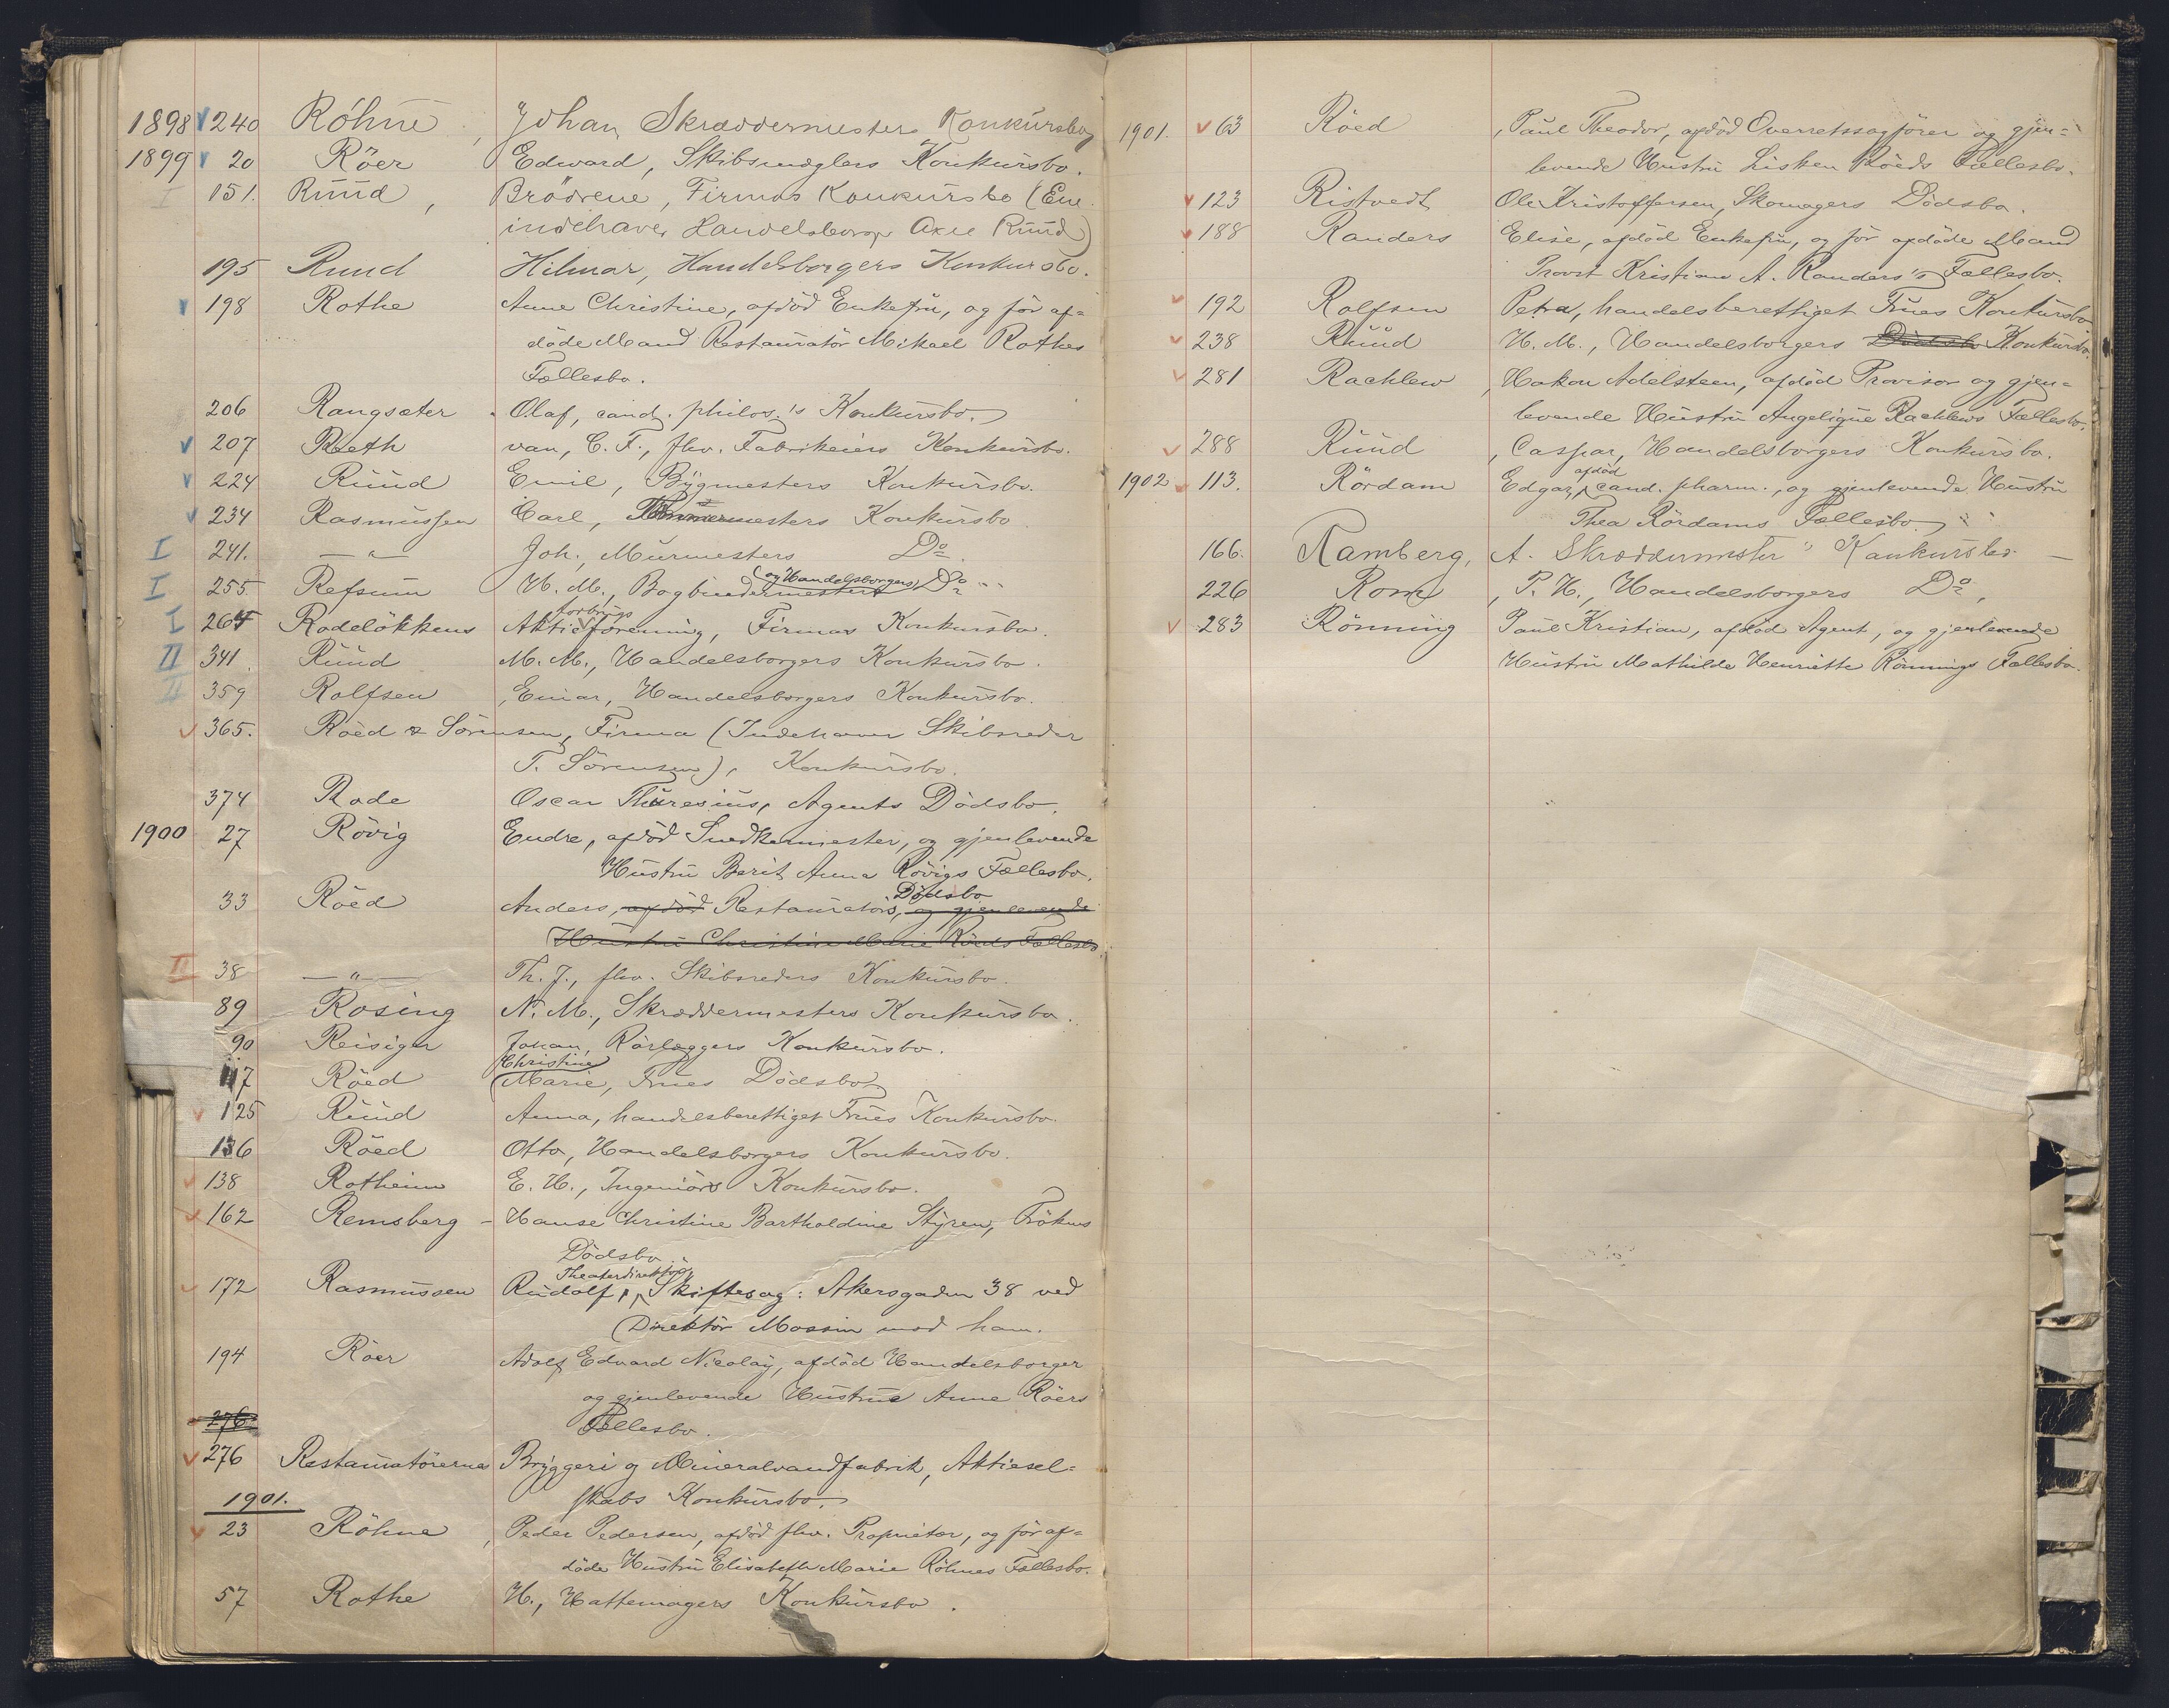 1898 240 Röhne, Johan Skræddermesters Konkursbo
1899 20 Röer Edward, Skibsmæglers Konkursbo.
I 151. Ruud, Brödrene, Firmas Konkursbo (Ene
indehaver Handelsborger Axel Ruud)
195 Ruud Hilmar, Handelsborgers Konkursbo.
198 Rothe Anne Christine, afdöd Enkefru, og för af-
döde Mand Restauratör Mikael Rothes
Fællesbo.
206 Rangsæter Olaf, cand. philos.'s Konkursbo.
207 Reeth van, C. F., fhv. Fabrikeiers Konkursbo.
224 Ruud Emil, Bygmesters Konkursbo.
234 Rasmussen Carl, mesters Konkursbo
I 241. —"— Joh., Murmesters Do.
I 255. Refsum H. M., Bogbindermesters (og Handelsborgers) Do
I 264 Rodelökkens Aktieforbrugsforening, Firmas Konkursbo.
II 341. Ruud M. M., Handelsborgers Konkursbo.
II 359 Rolfsen, Einar, Handelsborgers Konkursbo.
365. Röed & Sörensen, Firma (Indehaver Skibsreder
T. Sörensen), Konkursbo.
374 Rode Oscar Thuresius, Agents Dödsbo.
1900 27 Rövig Endre, afdöd Snedkermester, og gjenlevende
Hustru Berit Anna Rövigs Fællesbo.
33 Röed Anders, afdöd Restauratörs, Dödsbo og gjenlevende
Hustru Christine Marie Röeds Fællesbo.
II 38 —"— Th. J., fhv. Skibsreders Konkursbo.
89 Rosing N. M., Skræddermesters Konkursbo.
90 Reisiger Johan, Rörlæggers Konkursbo.
117 Röed Christine Marie, Frues Dödsbo
125 Ruud Anna, handelsberettiget Frues Konkursbo.
136 Röed Otto, Handelsborgers Konkursbo.
138 Rotheim E. H., Ingeniörs Konkursbo.
162 Remsberg – Hanse Christine Bartholdine Styren, Frökens
Dödsbo.
172 Rasmussen Rudolf, Theaterdirektör, Skiftesag: Akersgaden 38 ved
Direktör Mossin mod ham.
194 Röer Adolf Edvard Nicolay, afdöd Handelsborger
og gjenlevende Hustrue Anne Röers
276 Fællesbo.
276 Restauratörernes Bryggeri og Mineralvandfabrik, Aktiesel-
skabs Konkursbo.
1901.
23 Röhne, Peder Pedersen, afdöd fhv. Proprietær, og för af-
döde Hustru Elisabeth Marie Röhnes Fællesbo.
57 Rothe H., Hattemagers Konkursbo.
1901. 63 Röed, Paul Theodor, afdöd Overretssagförer og gjen-
levende Hustru Lisken Röeds Fællesbo.
123 Ristvedt Ole Kristoffersen, Skomagers Dödsbo.
188 Randers Elise, afdöd Enkefru, og för afdöde Mand
Provst Kristian A. Randers's Fællesbo.
192 Rolfsen Petra, handelsberettiget Frues Konkursbo
238 Ruud H. M., Handelsborgers Dödsbo Konkursbo.
281 Rachlew, Hakon Adelsteen, afdöd Provisor og gjen-
levende Hustru Angelique Rachlews Fællesbo.
288 Ruud, Caspar, Handelsborgers Konkursbo.
1902 113. Rördam Edgar, afdöd cand. pharm., og gjenlevende Hustru
Thea Rördams Fællesbo
166. Ramberg, A. Skræddermester" Konkursbo. —
226 Rom, P. H., Handelsborgers Do,
283 Rönning Paul Kristian, afdöd Agent, og gjenlevende
Hustru Mathilde Henriette Rönnings Fællesbo.